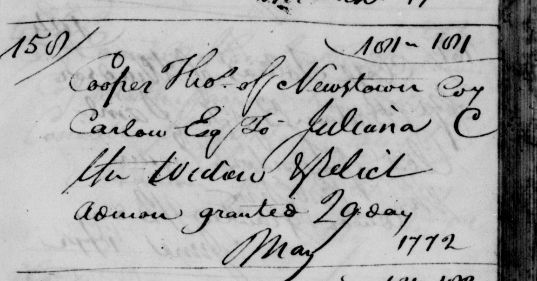 158/ 181 - 181
Cooper Thos. of Newstown Coy
Carlow Esq To Juliana C
the Widow & Relict
Admon granted 29 day
May 1772